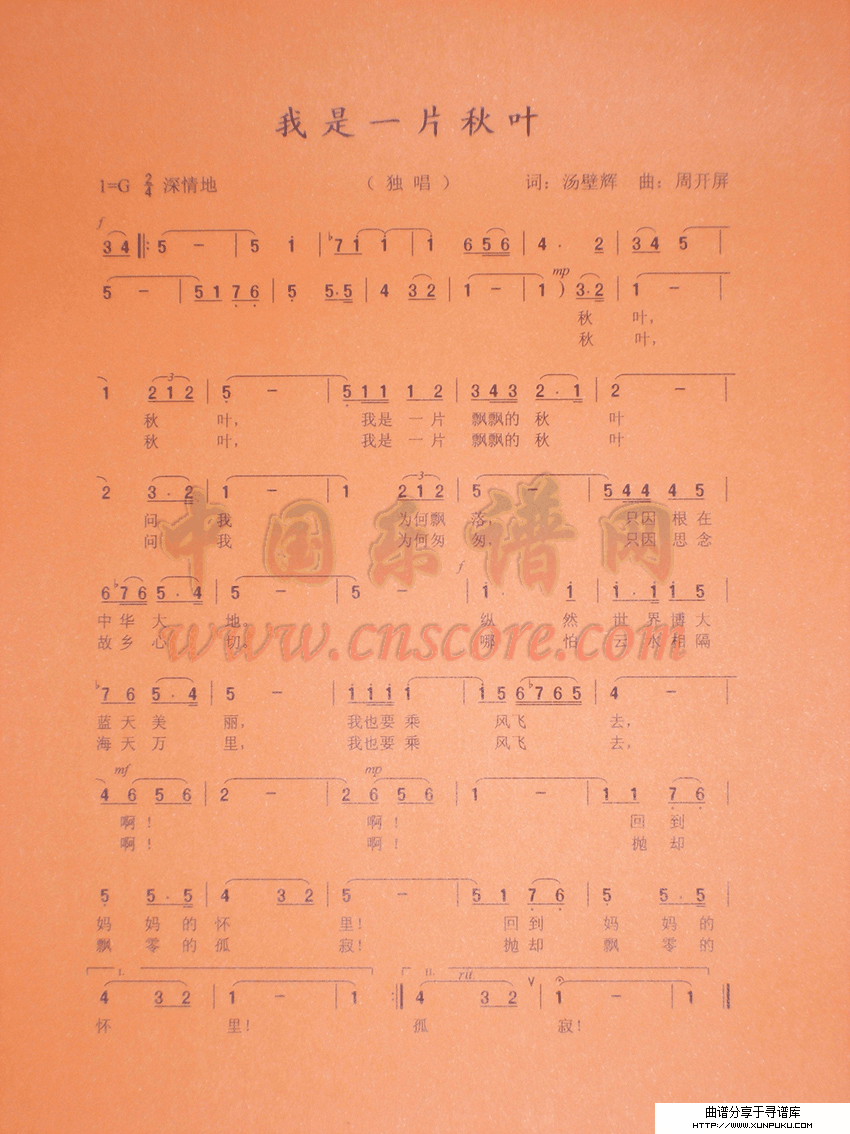 我是一片秋叶
1=G 2/4 深情地 （独唱） 词：汤壁辉 曲：周开屏
f
3 4 ‖: 5 － | 5 i | ♭7 i i | i 6 5 6 | 4 · 2 | 3 4 5 |
mp
5 － | 5 1 7 6 | 5 5·5 | 4 3 2 | 1 － | 1 ) 3·2 | 1 － |
秋 叶，
秋 叶，
3
1 2 1 2 | 5 － | 5 1 1 1 2 | 3 4 3 2·1 | 2 － |
秋 叶， 我是 一 片 飘飘的 秋 叶
秋 叶， 我是 一 片 飘飘的 秋 叶
3
2 3·2 | 1 － | 1 2 1 2 | 5 － | 5 4 4 4 5 |
问 我 为何飘 落， 只因 根 在
问 我 为何匆 匆， 只因 思 念
f
6 ♭7 6 5·4 | 5 － | 5 － | i · i | i · i i 5 |
中 华 大 地。 纵 然 世 界 博 大
故 乡 心 切。 哪 怕 云 水 相 隔
♭7 6 5·4 | 5 － | i i i i | i 5 6 ♭7 6 5 | 4 － |
蓝 天 美 丽， 我也要 乘 风飞 去，
海 天 万 里， 我也要 乘 风飞 去，
mf mp
4 6 5 6 | 2 － | 2 6 5 6 | 1 － | 1 1 7 6 |
啊！ 啊！ 回 到
啊！ 啊！ 抛 却
5 5·5 | 4 3 2 | 5 － | 5 1 7 6 | 5 5·5 |
妈 妈 的 怀 里！ 回 到 妈 妈 的
飘 零 的 孤 寂！ 抛 却 飘 零 的
I. II. rit
4 3 2 | 1 － | 1 :‖ 4 3 2 | 1 － | 1 ‖
怀 里！ 孤 寂！
中国乐谱网
www.cnscore.com
曲谱分享于寻谱库
HTTP://WWW.XUNPUKU.COM